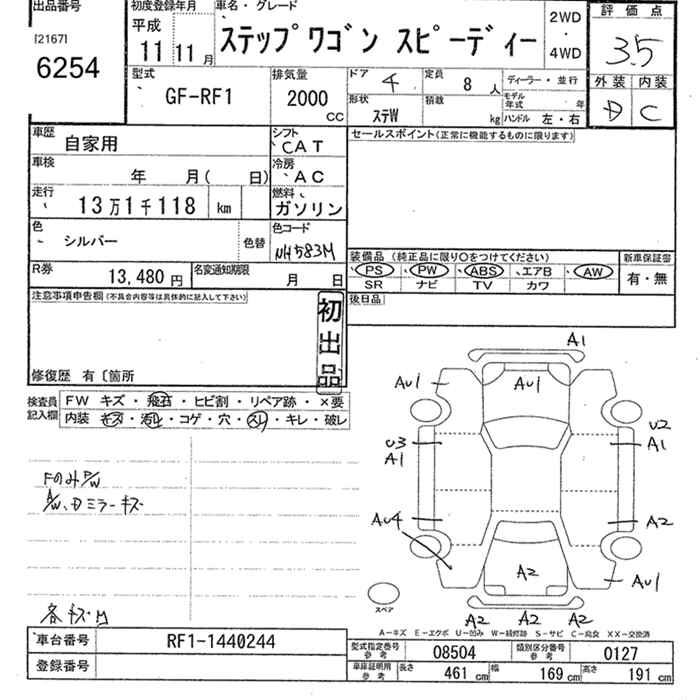 出品番号
[2167]
6254
初度登録年月
平成
11 11月
車名・グレード
ステップワゴン スピーディー
2WD
・
4WD
評価点
3.5
外装 内装
D C
型式
GF-RF1
排気量
2000
CC
ドア 4
定員 8 人
ディーラー・並行
形状 ステW
積載 kg
モデル年式 年
ハンドル 左・右
車歴 自家用
シフト CAT
セールスポイント(正常に機能するものに限ります)
車検 年 月( 日)
冷房 AC
走行 13万1千118 km
燃料 ガソリン
色 シルバー 色替
色コード NH583M
装備品 (純正品に限り○をつけてください)
新車保証書
PS・PW・ABS・エアB・AW
有・無
SR ナビ TV カワ
R券 13,480円
名変通知期限 月 日
後日品
注意事項申告欄(不具合内容等は具体的に記入して下さい)
初出品
修復歴 有〔箇所
検査員記入欄
FW キズ・飛石・ヒビ割・リペア跡・×要
内装 キズ・汚レ・コゲ・穴・スレ・キレ・破レ
FのみP/W
A/W、Dミラーキズ
各キズ凹
A1
AU1
AU1
U3
A1
U2
A1
AU4
A2
A2
AU1
A2 A2 A2
スペア
A-キズ E-エクボ U-凹み W-補修跡 S-サビ C-腐食 XX-交換済
車台番号 RF1-1440244
登録番号
型式指定番号 参考 08504
類別区分番号 参考 0127
車庫証明用 参考 長さ 461 cm 幅 169 cm 高さ 191 cm